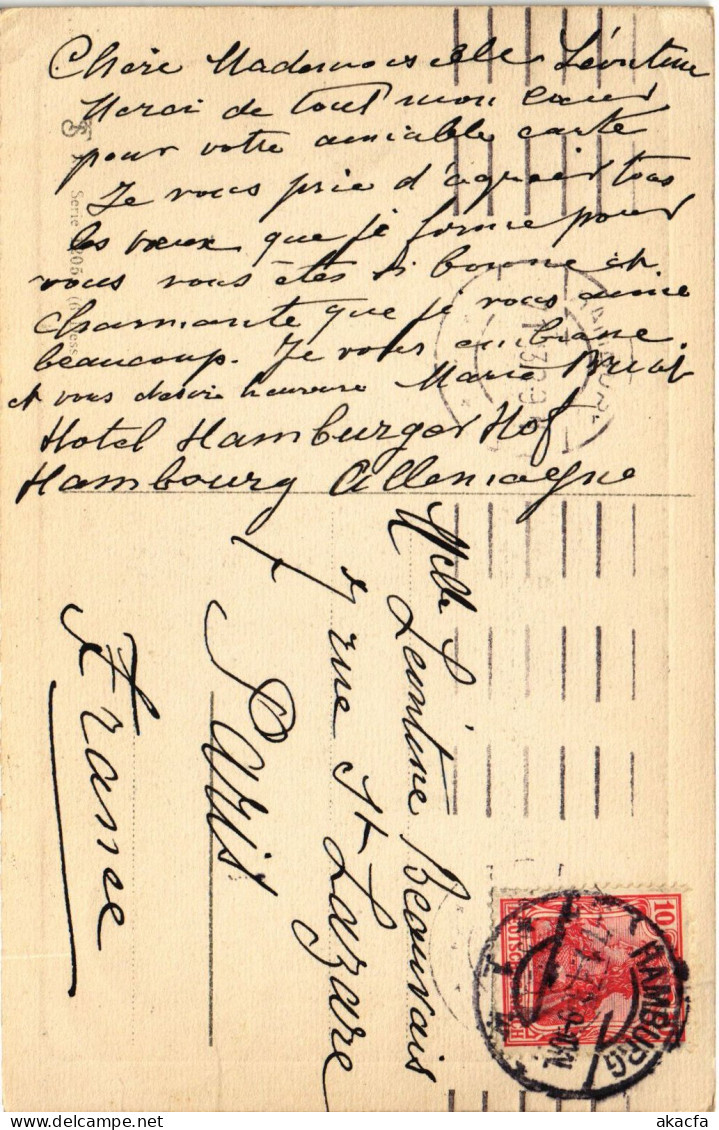 Chère Mademoiselle Léontine
Merci de tout mon cœur
pour votre amiable carte
Je vous prie d'agréer tous
les vœux que je forme pour
vous vous êtes si bonne et
charmante que je vous aime
beaucoup. Je vous embrasse
et vous désire heureuse Marie
Hotel Hamburger Hof
Hambourg Allemagne
Melle Leontine Beauvais
rue St Lazare
Paris
France
Serie
10
HAMBURG
akacfa